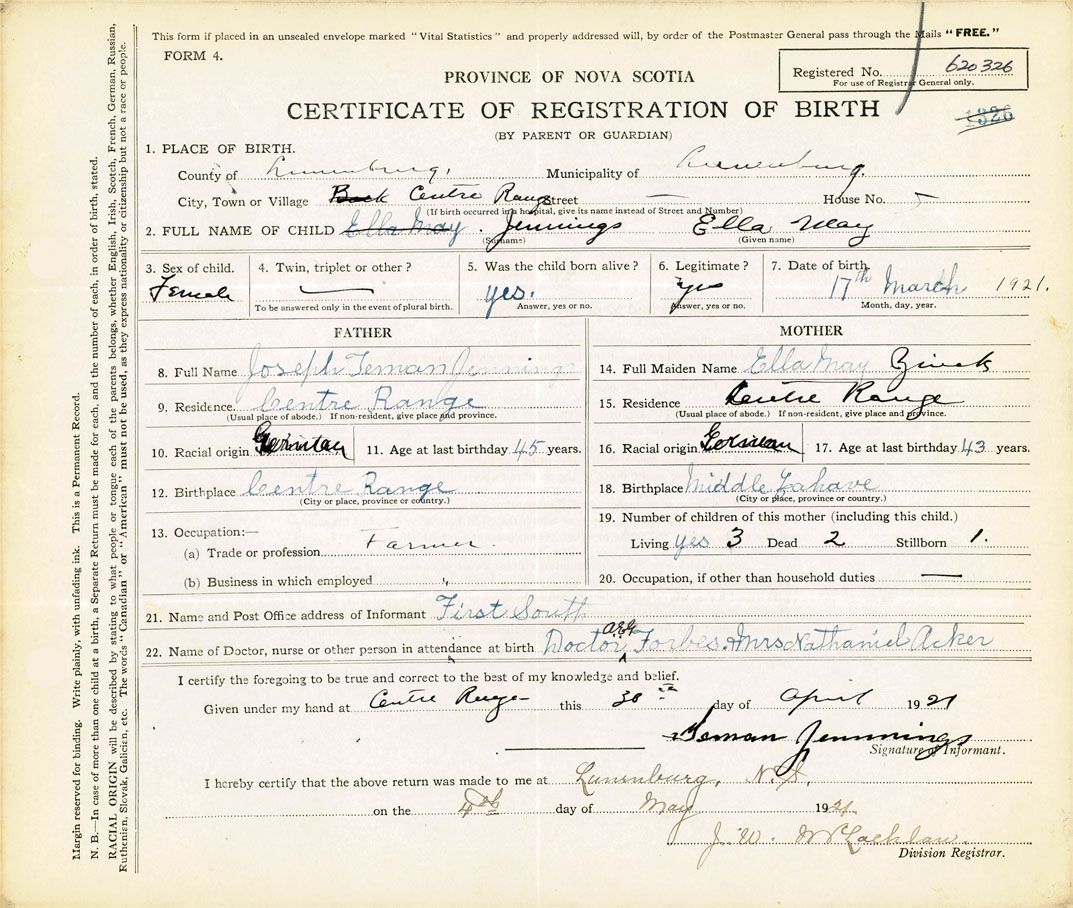 This form if placed in an unsealed envelope marked "Vital Statistics" and properly addressed will, by order of the Postmaster General pass through the Mails "FREE."
FORM 4.
Registered No. 620326
For use of Registrar General only.
1326
PROVINCE OF NOVA SCOTIA
CERTIFICATE OF REGISTRATION OF BIRTH
(BY PARENT OR GUARDIAN)
1. PLACE OF BIRTH.
County of Lunenburg, Municipality of Lunenburg.
City, Town or Village Back Centre Range Street — House No.
(If birth occurred in a hospital, give its name instead of Street and Number)
2. FULL NAME OF CHILD Ella May Jennings Ella May
(Surname) (Given name)
3. Sex of child. 4. Twin, triplet or other? 5. Was the child born alive? 6. Legitimate? 7. Date of birth
Female — yes. yes 17th March 1921.
To be answered only in the event of plural birth. Answer, yes or no. Answer, yes or no. Month, day, year.
FATHER
8. Full Name Joseph Teman Jennings
9. Residence. Centre Range
(Usual place of abode.) If non-resident, give place and province.
10. Racial origin German 11. Age at last birthday 45 years.
12. Birthplace Centre Range
(City or place, province or country.)
13. Occupation:—
(a) Trade or profession Farmer.
(b) Business in which employed "
MOTHER
14. Full Maiden Name Ella May Zinck
15. Residence Centre Range
(Usual place of abode.) If non-resident, give place and province.
16. Racial origin German 17. Age at last birthday 43 years.
18. Birthplace Middle Lahave
(City or place, province or country.)
19. Number of children of this mother (including this child.)
Living yes 3 Dead 2 Stillborn 1.
20. Occupation, if other than household duties —
21. Name and Post Office address of Informant First South
22. Name of Doctor, nurse or other person in attendance at birth Doctor Forbes & Mrs Nathaniel Acker
I certify the foregoing to be true and correct to the best of my knowledge and belief.
Given under my hand at Centre Range this 30th day of April 1921
Teman Jennings
Signature of Informant.
I hereby certify that the above return was made to me at Lunenburg, N.S.
on the 4th day of May 1921.
J. W. McLachlan.
Division Registrar.
Margin reserved for binding. Write plainly, with unfading ink. This is a Permanent Record.
N. B.—In case of more than one child at a birth, a Separate Return must be made for each, and the number of each, in order of birth, stated.
RACIAL ORIGIN will be described by stating to what people or tongue each of the parents belongs, whether English, Irish, Scotch, French, German, Russian,
Ruthenian, Slovak, Galician, etc. The words "Canadian" or "American" must not be used, as they express nationality or citizenship but not a race or people.